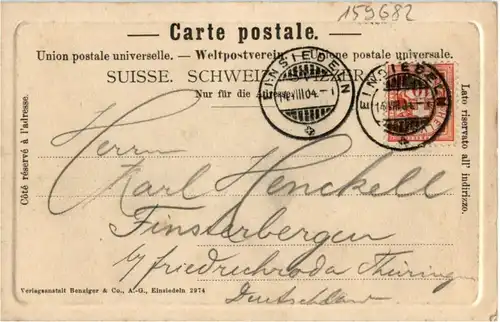 159682
Carte postale.
Union postale universelle. — Weltpostverein. — Unione postale universale.
SUISSE. SCHWEIZ. SVIZZERA.
Nur für die Adresse.
EINSIEDELN
EINSIEDELN
Côté réservé à l'adresse.
Lato riservato all' indirizzo.
Herrn
Karl Henckell
Finsterbergen
b/ Friedrichroda Thüringen
Deutschland
Verlagsanstalt Benziger & Co., A.-G., Einsiedeln 2974